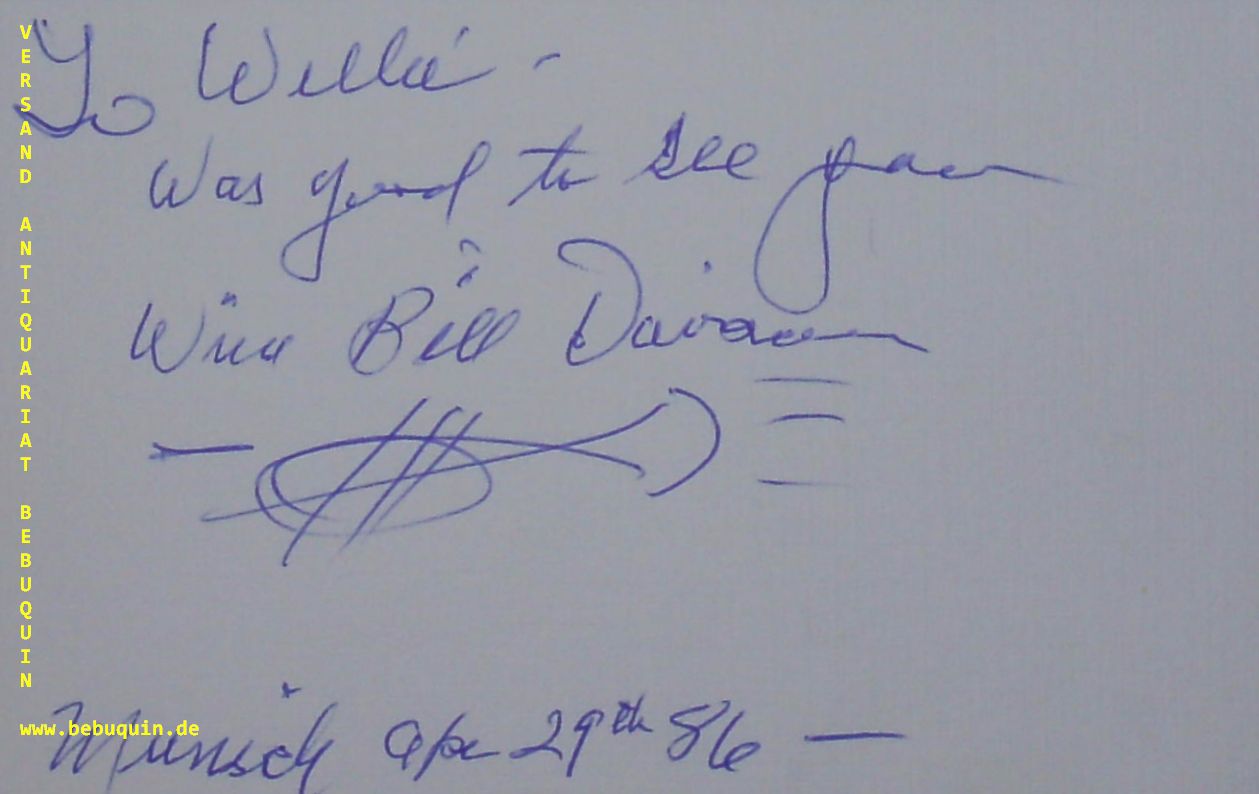 To Willie -
Was good to see you
Wild Bill Davison
Munich Apr 29th 86 —
VERSAND ANTIQUARIAT BEBUQUIN
www.bebuquin.de